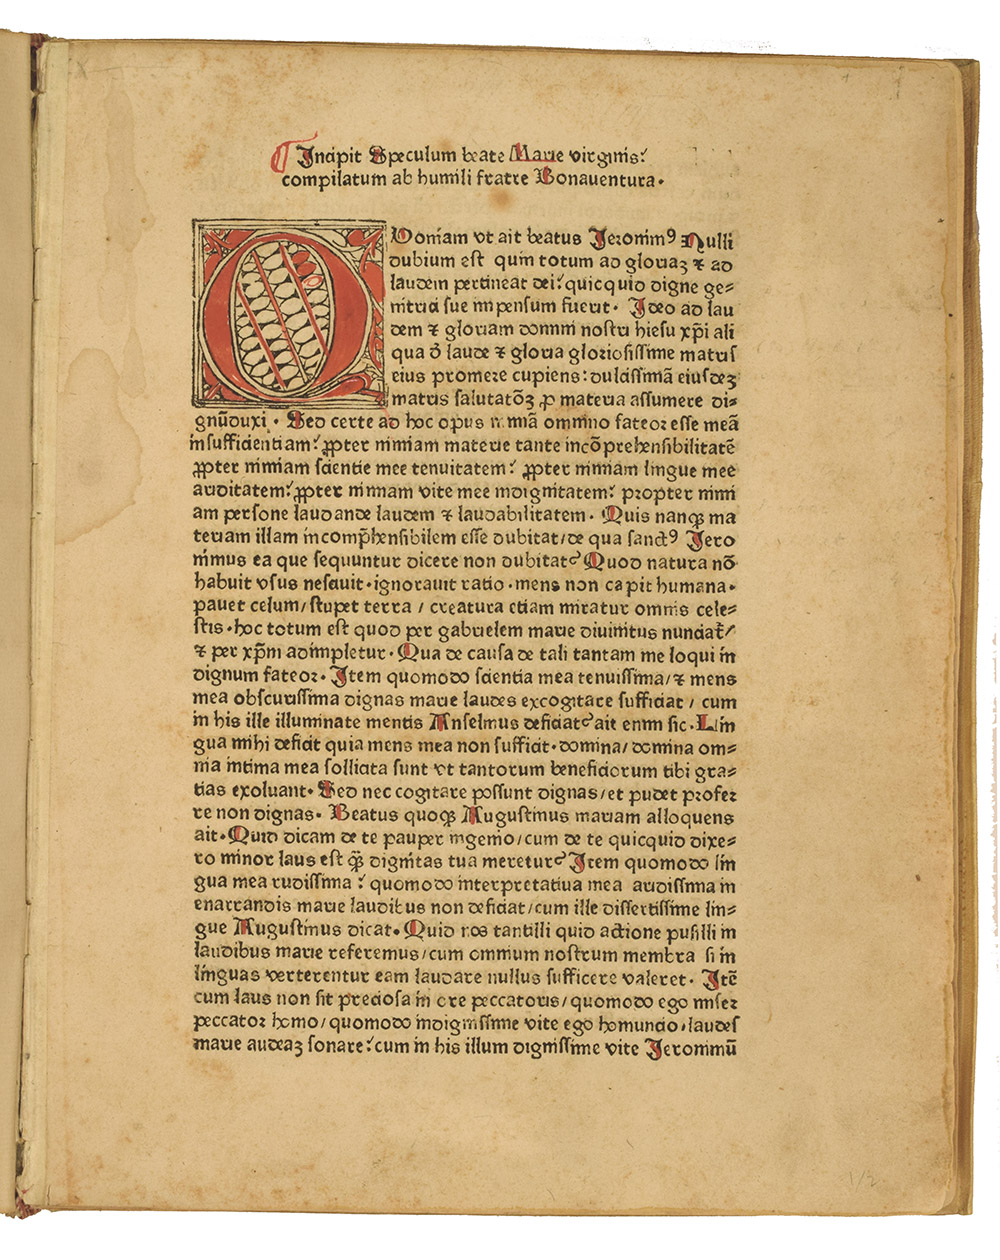 Incipit Speculum beate Marie virginis:
compilatum ab humili fratre Bonauentura.
QUoniam vt ait beatus Jeronimꝰ Nulli
dubium est quin totum ad gloriaꝫ ⁊ ad
laudem pertineat dei: quicquid digne ge⸗
nitrici sue impensum fuerit. Ideo ad lau
dem ⁊ gloriam domini nostri hiesu xp̄i ali
qua d̄ laude ⁊ gloria gloriosissime matris
eius promere cupiens: dulcissimā eiusdeꝫ
matris salutatōꝫ ꝓ materia assumere di⸗
gnū duxi. Sed certe ad hoc opus nimiā omnino fateor esse meā
insufficientiam: ꝓpter nimiam materie tante incōprehensibilitatē
ꝓpter nimiam scientie mee tenuitatem: ꝓpter nimiam lingue mee
ariditatem: ꝓpter nimiam vite mee indignitatem: propter nimi
am persone laudande laudem ⁊ laudabilitatem. Quis nanqꝫ ma
teriam illam incomp̄hensibilem esse dubitat/ de qua sanctꝰ Jero
nimus ea que sequuntur dicere non dubitat? Quod natura nō
habuit vsus nesciuit. ignorauit ratio. mens non capit humana.
pauet celum/ stupet terra / creatura etiam miratur omnis cele⸗
stis. hoc totum est quod per gabrielem marie diuinitus nunciat̄/
⁊ per xp̄m adimpletur. Qua de causa de tali tantam me loqui in
dignum fateor. Item quomodo scientia mea tenuissima/ ⁊ mens
mea obscurissima dignas marie laudes excogitare sufficiat / cum
in his ille illuminate mentis Anselmus deficiat? ait enim sic. Lin
gua mihi deficit quia mens mea non sufficit. domina/ domina om⸗
nia intima mea sollicita sunt vt tantorum beneficiorum tibi gra⸗
tias exoluant. Sed nec cogitare possunt dignas/ et pudet profer
re non dignas. Beatus quoqꝫ Augustinus mariam alloquens
ait. Quid dicam de te pauper ingenio/ cum de te quicquid dixe⸗
ro minor laus est qꝫ̄ dignitas tua meretur? Item quomodo lin
gua mea rudissima : quomodo interpretatiua mea aridissima in
enarrandis marie laudibus non deficiat/ cum ille dissertissime lin⸗
gue Augustinus dicat. Quid nos tantilli quid actione pusilli in
laudibus marie referemus/ cum omnium nostrum membra si in
linguas verterentur eam laudare nullus sufficere valeret. Itē
cum laus non sit preciosa in ore peccatoris/ quomodo ego miser
peccator homo/ quomodo indignissime vite ego homuncio/ laudes
marie audeaꝫ sonare: cum in his illum dignissime vite Jeronimū
1/2